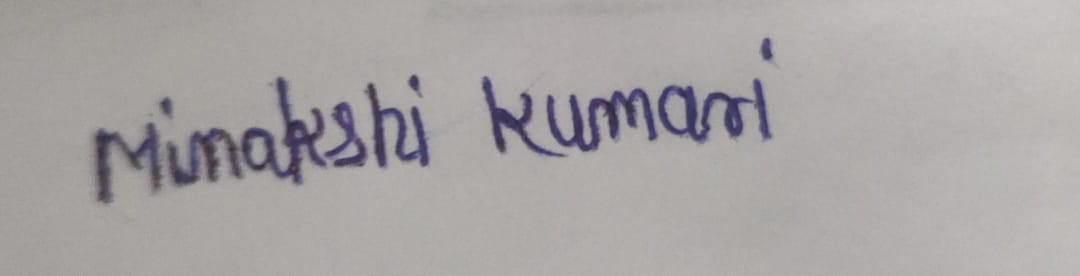 Minakshi Kumari